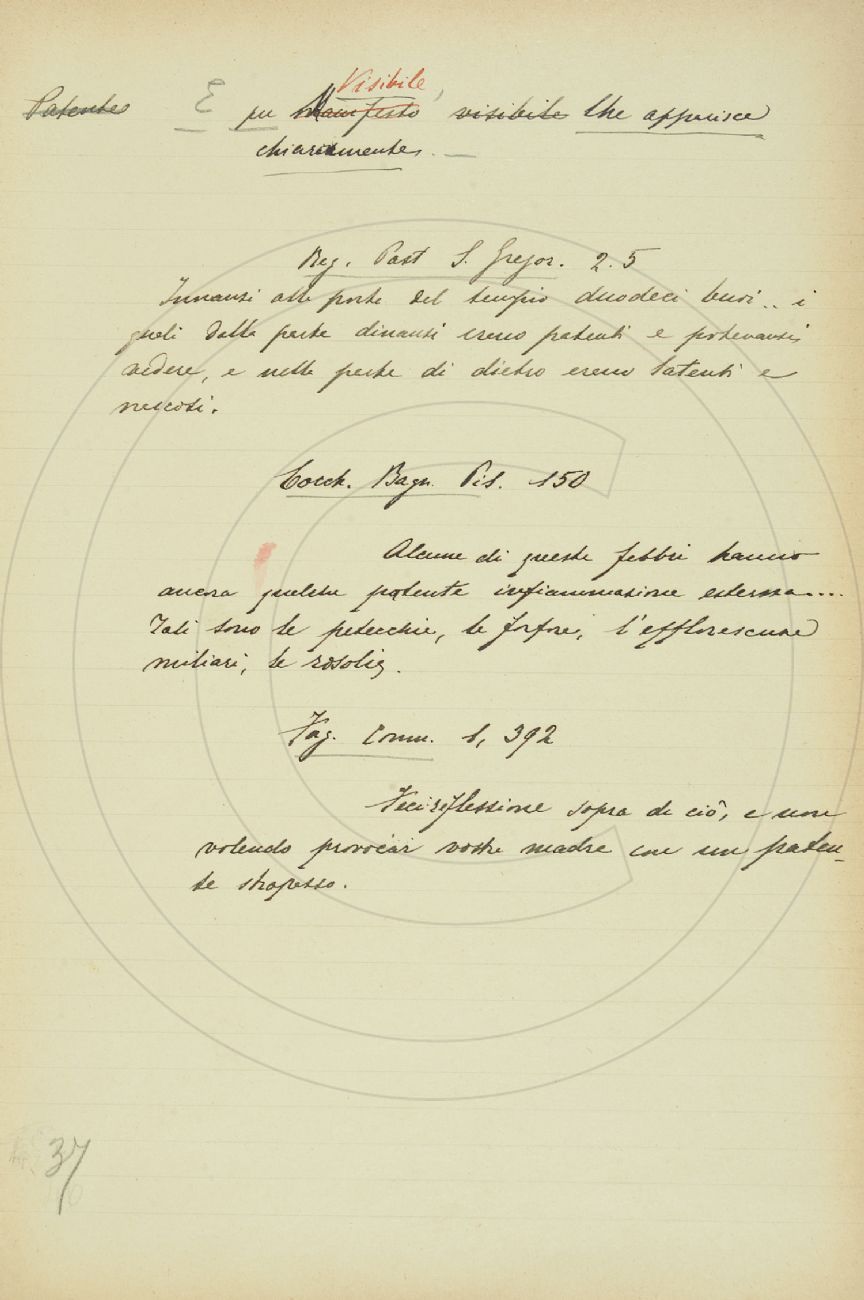 Visibile,
Patente E per Manifesto visibile Che apparisce
chiaramente.
Reg. Past S. Gregor. 2. 5
Innanzi alle porte del tempio duodeci buoi... i
quali dalla parte dinanzi erano patenti e potevansi
vedere, e nella parte di dietro erano latenti e
nescosi.
Cocch. Bagn. Pis. 150
Alcune di queste febbri hanno
ancora qualche patente infiammazione esterna....
Tali sono le petecchie, le forfore, l'efflorescenze
miliari, le rosolie.
Fag. Comm. 1, 392
Feci reflessione sopra di ciò, e non
volendo provocar vostra madre con un paten-
te strapazzo.
37